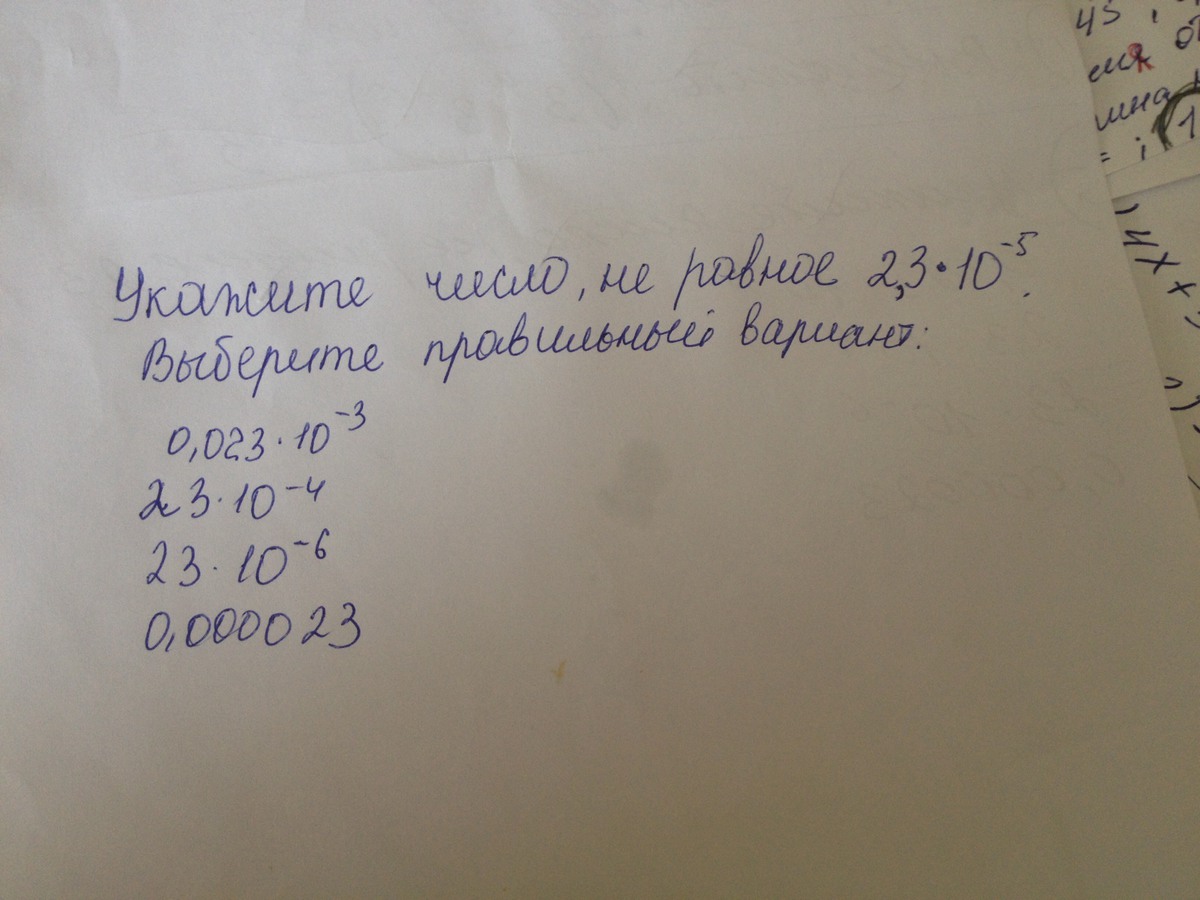 Укажите число, не равное 2,3·10⁻⁵.
Выберите правильный вариант:
0,023·10⁻³
23·10⁻⁴
23·10⁻⁶
0,000023
45,
= ; 1